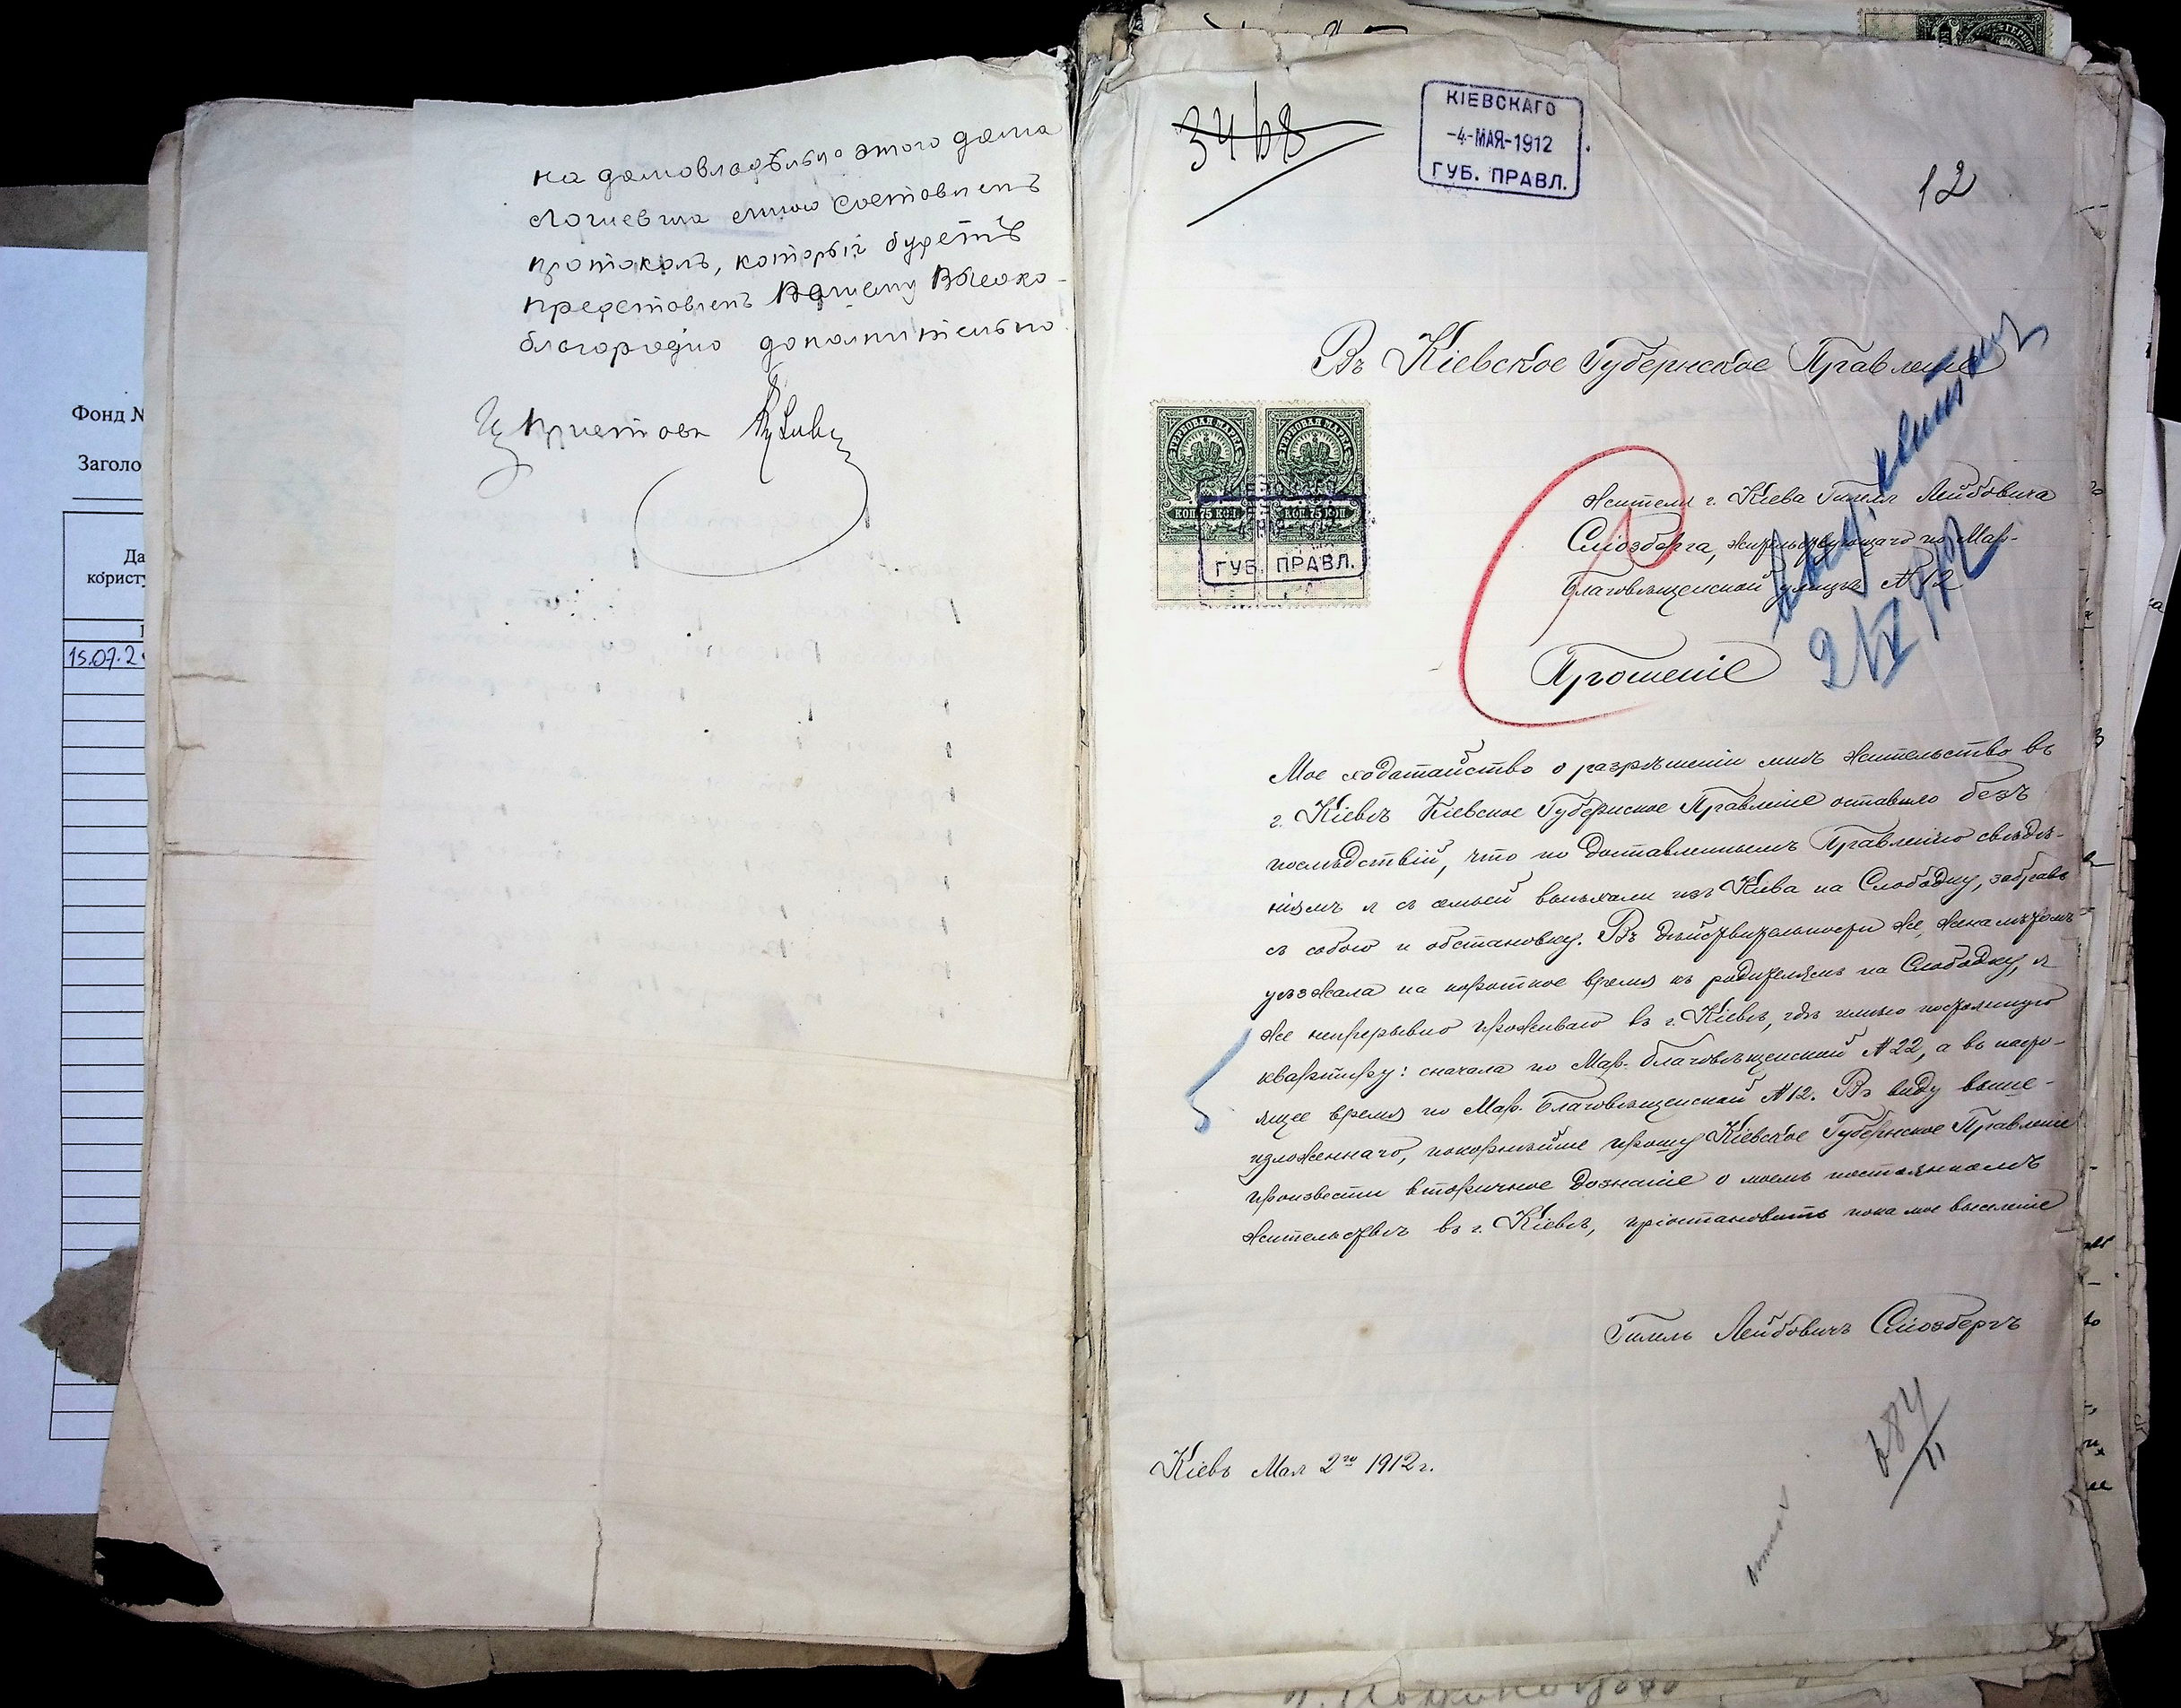 на домовладѣльца этого дома
мною составленъ
протоколъ, который будетъ
представленъ Вашему Высоко-
благородію дополнительно
Приставъ
Фонд №
Заголо
Да
корист
1
15.07.2
3468
КІЕВСКАГО
-4-МАЯ-1912
ГУБ. ПРАВЛ.
12
Въ Кіевское Губернское Правленіе
КОП. 75 КОП.
КОП. 75 КОП.
ГУБ. ПРАВЛ.
Жителя г. Кіева Гиллел Лейбовича
Сліозберга, жительствующаго по Мар.-
Благовѣщенской улицѣ № 12
Прошеніе
Мое ходатайство о разрѣшеніи мнѣ жительство въ
г. Кіевѣ Кіевское Губернское Правленіе оставило безъ
послѣдствій, что по доставленнымъ Правленію свѣдѣ-
ніямъ я съ семьей выѣхали изъ Кіева на Слободку, забравъ
съ собою и обстановку. Въ дѣйствительности же, жена лѣтомъ
уѣзжала на короткое время къ родителямъ на Слободку, я
же непрерывно проживаю въ г. Кіевѣ, гдѣ имѣю постоянную
квартиру: сначала по Мар.-Благовѣщенской № 22, а въ насто-
ящее время по Мар. Благовѣщенской № 12. Въ виду выше-
изложеннаго, покорнѣйше прошу Кіевское Губернское Правленіе
произвести вторичное дознаніе о моемъ постоянномъ
жительствѣ въ г. Кіевѣ, пріостановить пока мое выселеніе
Гилель Лейбовичъ Сліозбергъ
Кіевъ Мая 2го 1912 г.